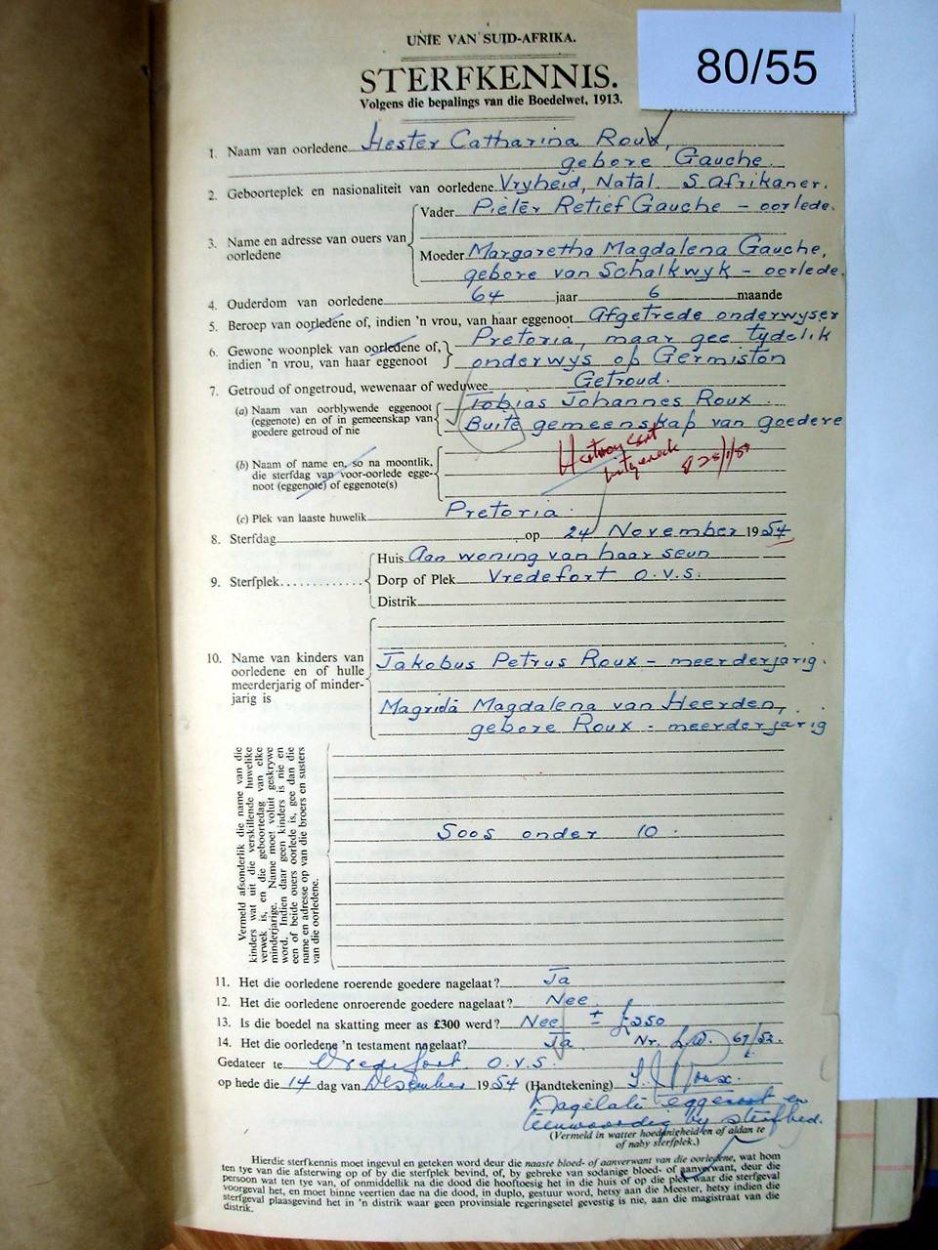 80/55
UNIE VAN SUID-AFRIKA.
STERFKENNIS.
Volgens die bepalings van die Boedelwet, 1913.
1. Naam van oorledene Hester Catharina Roux,
gebore Gauche.
2. Geboorteplek en nasionaliteit van oorledene Vryheid, Natal. S. Afrikaner.
3. Name en adresse van ouers van oorledene
Vader Pieter Retief Gauche – oorlede.
Moeder Margaretha Magdalena Gauche,
gebore van Schalkwyk – oorlede.
4. Ouderdom van oorledene 64 jaar 6 maande
5. Beroep van oorledene of, indien 'n vrou, van haar eggenoot Afgetrede onderwyser
6. Gewone woonplek van oorledene of, indien 'n vrou, van haar eggenoot
Pretoria, maar gee tydelik
onderwys op Germiston
7. Getroud of ongetroud, wewenaar of weduwee Getroud.
(a) Naam van oorblywende eggenoot (eggenote) en of in gemeenskap van goedere getroud of nie
Tobias Johannes Roux.
Buite gemeenskap van goedere
(b) Naam of name en, so na moontlik, die sterfdag van voor-oorlede eggenoot (eggenote) of eggenote(s)
(c) Plek van laaste huwelik Pretoria.
8. Sterfdag op 24 November 1954
9. Sterfplek
Huis Aan woning van haar seun
Dorp of Plek Vredefort O.V.S.
Distrik
10. Name van kinders van oorledene en of hulle meerderjarig of minderjarig is
Jakobus Petrus Roux – meerderjarig.
Magrida Magdalena van Heerden,
gebore Roux – meerderjarig
Vermeld afsonderlik die name van die
kinders wat uit die verskillende huwelike
verwek is, en die geboortedag van elke
minderjarige. Name moet voluit geskrywe
word. Indien daar geen kinders is nie en
een of beide ouers oorlede is, gee dan die
name en adresse op van die broers en susters
van die oorledene.
Soos onder 10.
11. Het die oorledene roerende goedere nagelaat? Ja
12. Het die oorledene onroerende goedere nagelaat? Nee
13. Is die boedel na skatting meer as £300 werd? Nee ± £250
14. Het die oorledene 'n testament nagelaat? Ja Nr. 67/52.
Gedateer te Vredefort O.V.S.
op hede die 14 dag van Desember 1954 (Handtekening) Roux.
Nagelate eggenoot en
teenwoordig by sterfbed.
(Vermeld in watter hoedanigheid en of aldan te
of naby sterfplek.)
Hierdie sterfkennis moet ingevul en geteken word deur die naaste bloed- of aanverwant van die oorledene, wat hom
ten tye van die afsterwing op of by die sterfplek bevind, of, by gebreke van sodanige bloed- of aanverwant, deur die
persoon wat ten tye van, of onmiddellik na die dood die hooftoesig het in die huis of op die plek waar die sterfgeval
voorgeval het, en moet binne veertien dae na die dood, in duplo, gestuur word, hetsy aan die Meester, hetsy indien die
sterfgeval plaasgevind het in 'n distrik waar geen provinsiale regeringsetel gevestig is nie, aan die magistraat van die
distrik.